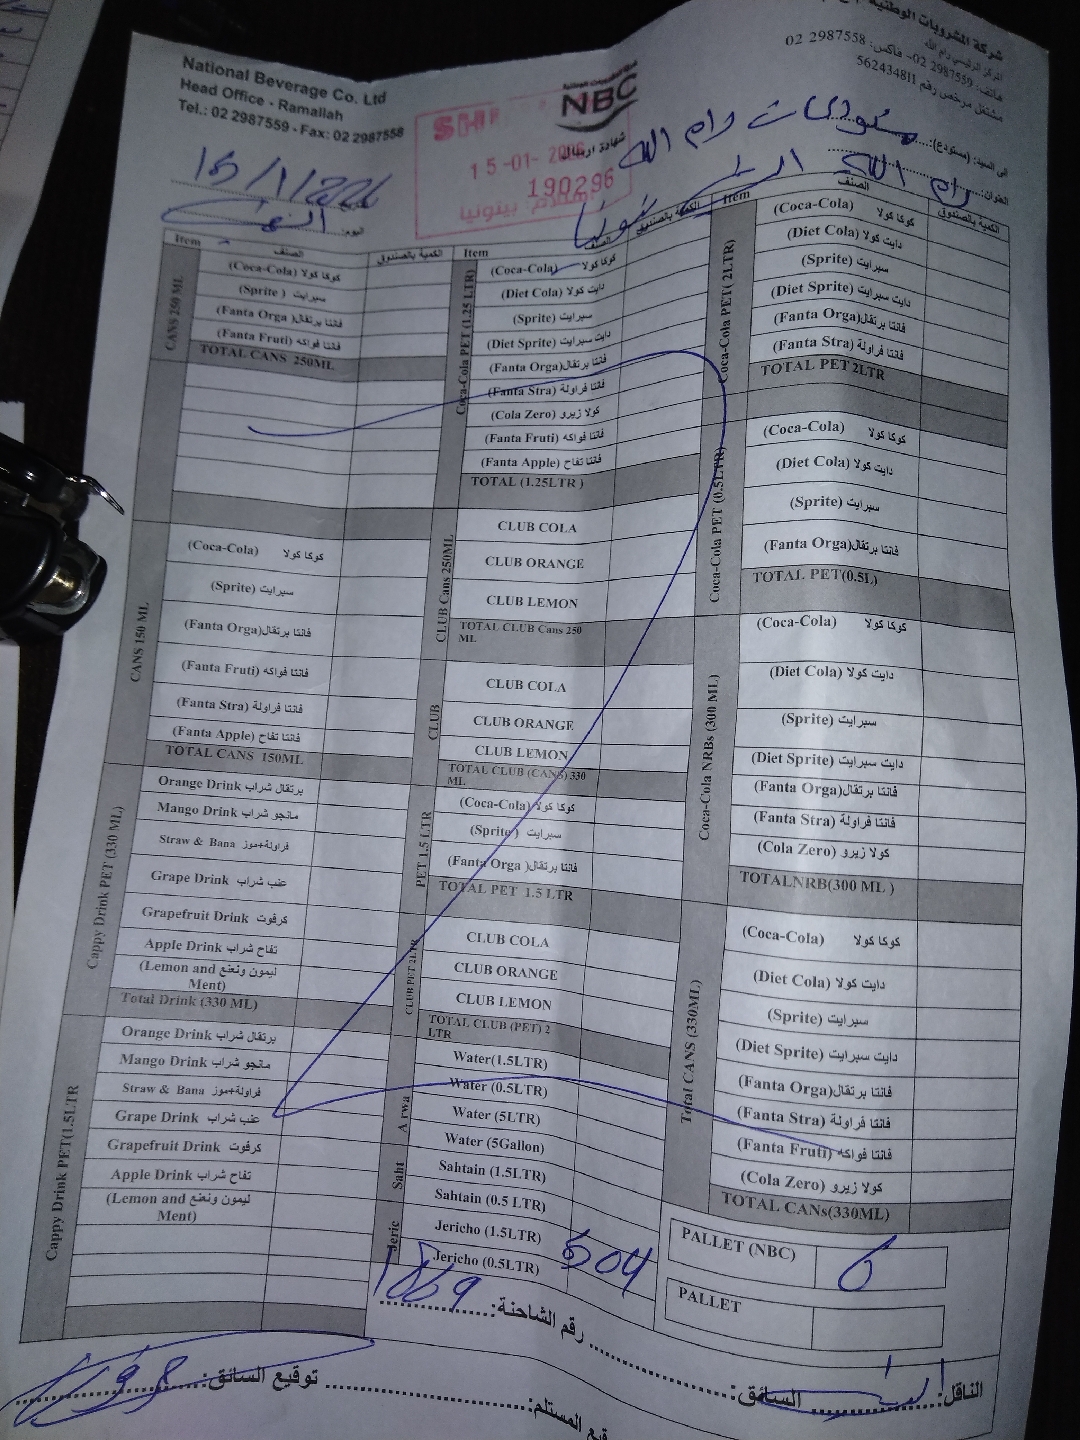 National Beverage Co. Ltd
Head Office - Ramallah
Tel.: 02 2987559 - Fax: 02 2987558
NBC
شركة المشروبات الوطنية
المركز الرئيسي رام الله
هاتف: 02 2987559- فاكس: 02 2987558
مشتغل مرخص رقم 562434811
شهادة ارسالية
15-01-
190296
15/1/2026
اليوم:
الى السيد: (مستودع): رام الله
العنوان: رام الله
Item الصنف الكمية بالصندوق
CANS 250 ML
(Coca-Cola) كوكا كولا
(Sprite ) سبرايت
(Fanta Orga) فانتا برتقال
(Fanta Fruti) فانتا فواكه
TOTAL CANS 250ML
CANS 150 ML
(Coca-Cola) كوكا كولا
(Sprite) سبرايت
(Fanta Orga) فانتا برتقال
(Fanta Fruti) فانتا فواكه
(Fanta Stra) فانتا فراولة
(Fanta Apple) فانتا تفاح
TOTAL CANS 150ML
Cappy Drink PET (330 ML)
Orange Drink برتقال شراب
Mango Drink مانجو شراب
Straw & Bana فراولة+موز
Grape Drink عنب شراب
Grapefruit Drink كرفوت
Apple Drink تفاح شراب
(Lemon and ليمون ونعنع
Ment)
Total Drink (330 ML)
Cappy Drink PET(1.5LTR
Orange Drink برتقال شراب
Mango Drink مانجو شراب
Straw & Bana فراولة+موز
Grape Drink عنب شراب
Grapefruit Drink كرفوت
Apple Drink تفاح شراب
(Lemon and ليمون ونعنع
Ment)
Item الصنف الكمية بالصندوق
Coca-Cola PET (1.25 LTR)
(Coca-Cola) كوكا كولا
(Diet Cola) دايت كولا
(Sprite) سبرايت
(Diet Sprite) دايت سبرايت
(Fanta Orga) فانتا برتقال
(Fanta Stra) فانتا فراولة
(Cola Zero) كولا زيرو
(Fanta Fruti) فانتا فواكه
(Fanta Apple) فانتا تفاح
TOTAL (1.25LTR )
CLUB Cans 250ML
CLUB COLA
CLUB ORANGE
CLUB LEMON
TOTAL CLUB Cans 250
ML
CLUB
CLUB COLA
CLUB ORANGE
CLUB LEMON
TOTAL CLUB (CANS) 330
ML
PET 1.5 LTR
(Coca-Cola) كوكا كولا
(Sprite ) سبرايت
(Fanta Orga ) فانتا برتقال
TOTAL PET 1.5 LTR
CLUB PET 2LTR
CLUB COLA
CLUB ORANGE
CLUB LEMON
TOTAL CLUB (PET) 2
LTR
Arwa
Water(1.5LTR)
Water (0.5LTR)
Water (5LTR)
Water (5Gallon)
Saht
Sahtain (1.5LTR)
Sahtain (0.5 LTR)
Jeric
Jericho (1.5LTR)
Jericho (0.5LTR) 504
Item الصنف الكمية بالصندوق
Coca-Cola PET( 2LTR)
(Coca-Cola) كوكا كولا
(Diet Cola) دايت كولا
(Sprite) سبرايت
(Diet Sprite) دايت سبرايت
(Fanta Orga) فانتا برتقال
(Fanta Stra) فانتا فراولة
TOTAL PET 2LTR
Coca-Cola PET (0.5LTR)
(Coca-Cola) كوكا كولا
(Diet Cola) دايت كولا
(Sprite) سبرايت
(Fanta Orga) فانتا برتقال
TOTAL PET(0.5L)
Coca-Cola NRBs (300 ML)
(Coca-Cola) كوكا كولا
(Diet Cola) دايت كولا
(Sprite) سبرايت
(Diet Sprite) دايت سبرايت
(Fanta Orga) فانتا برتقال
(Fanta Stra) فانتا فراولة
(Cola Zero) كولا زيرو
TOTALNRB(300 ML )
Total CANS (330ML)
(Coca-Cola) كوكا كولا
(Diet Cola) دايت كولا
(Sprite) سبرايت
(Diet Sprite) دايت سبرايت
(Fanta Orga) فانتا برتقال
(Fanta Stra) فانتا فراولة
(Fanta Fruti) فانتا فواكه
(Cola Zero) كولا زيرو
TOTAL CANs(330ML)
PALLET (NBC) 6
PALLET
رقم الشاحنة: 1869
الناقل: السائق:
توقيع السائق:
توقيع المستلم: